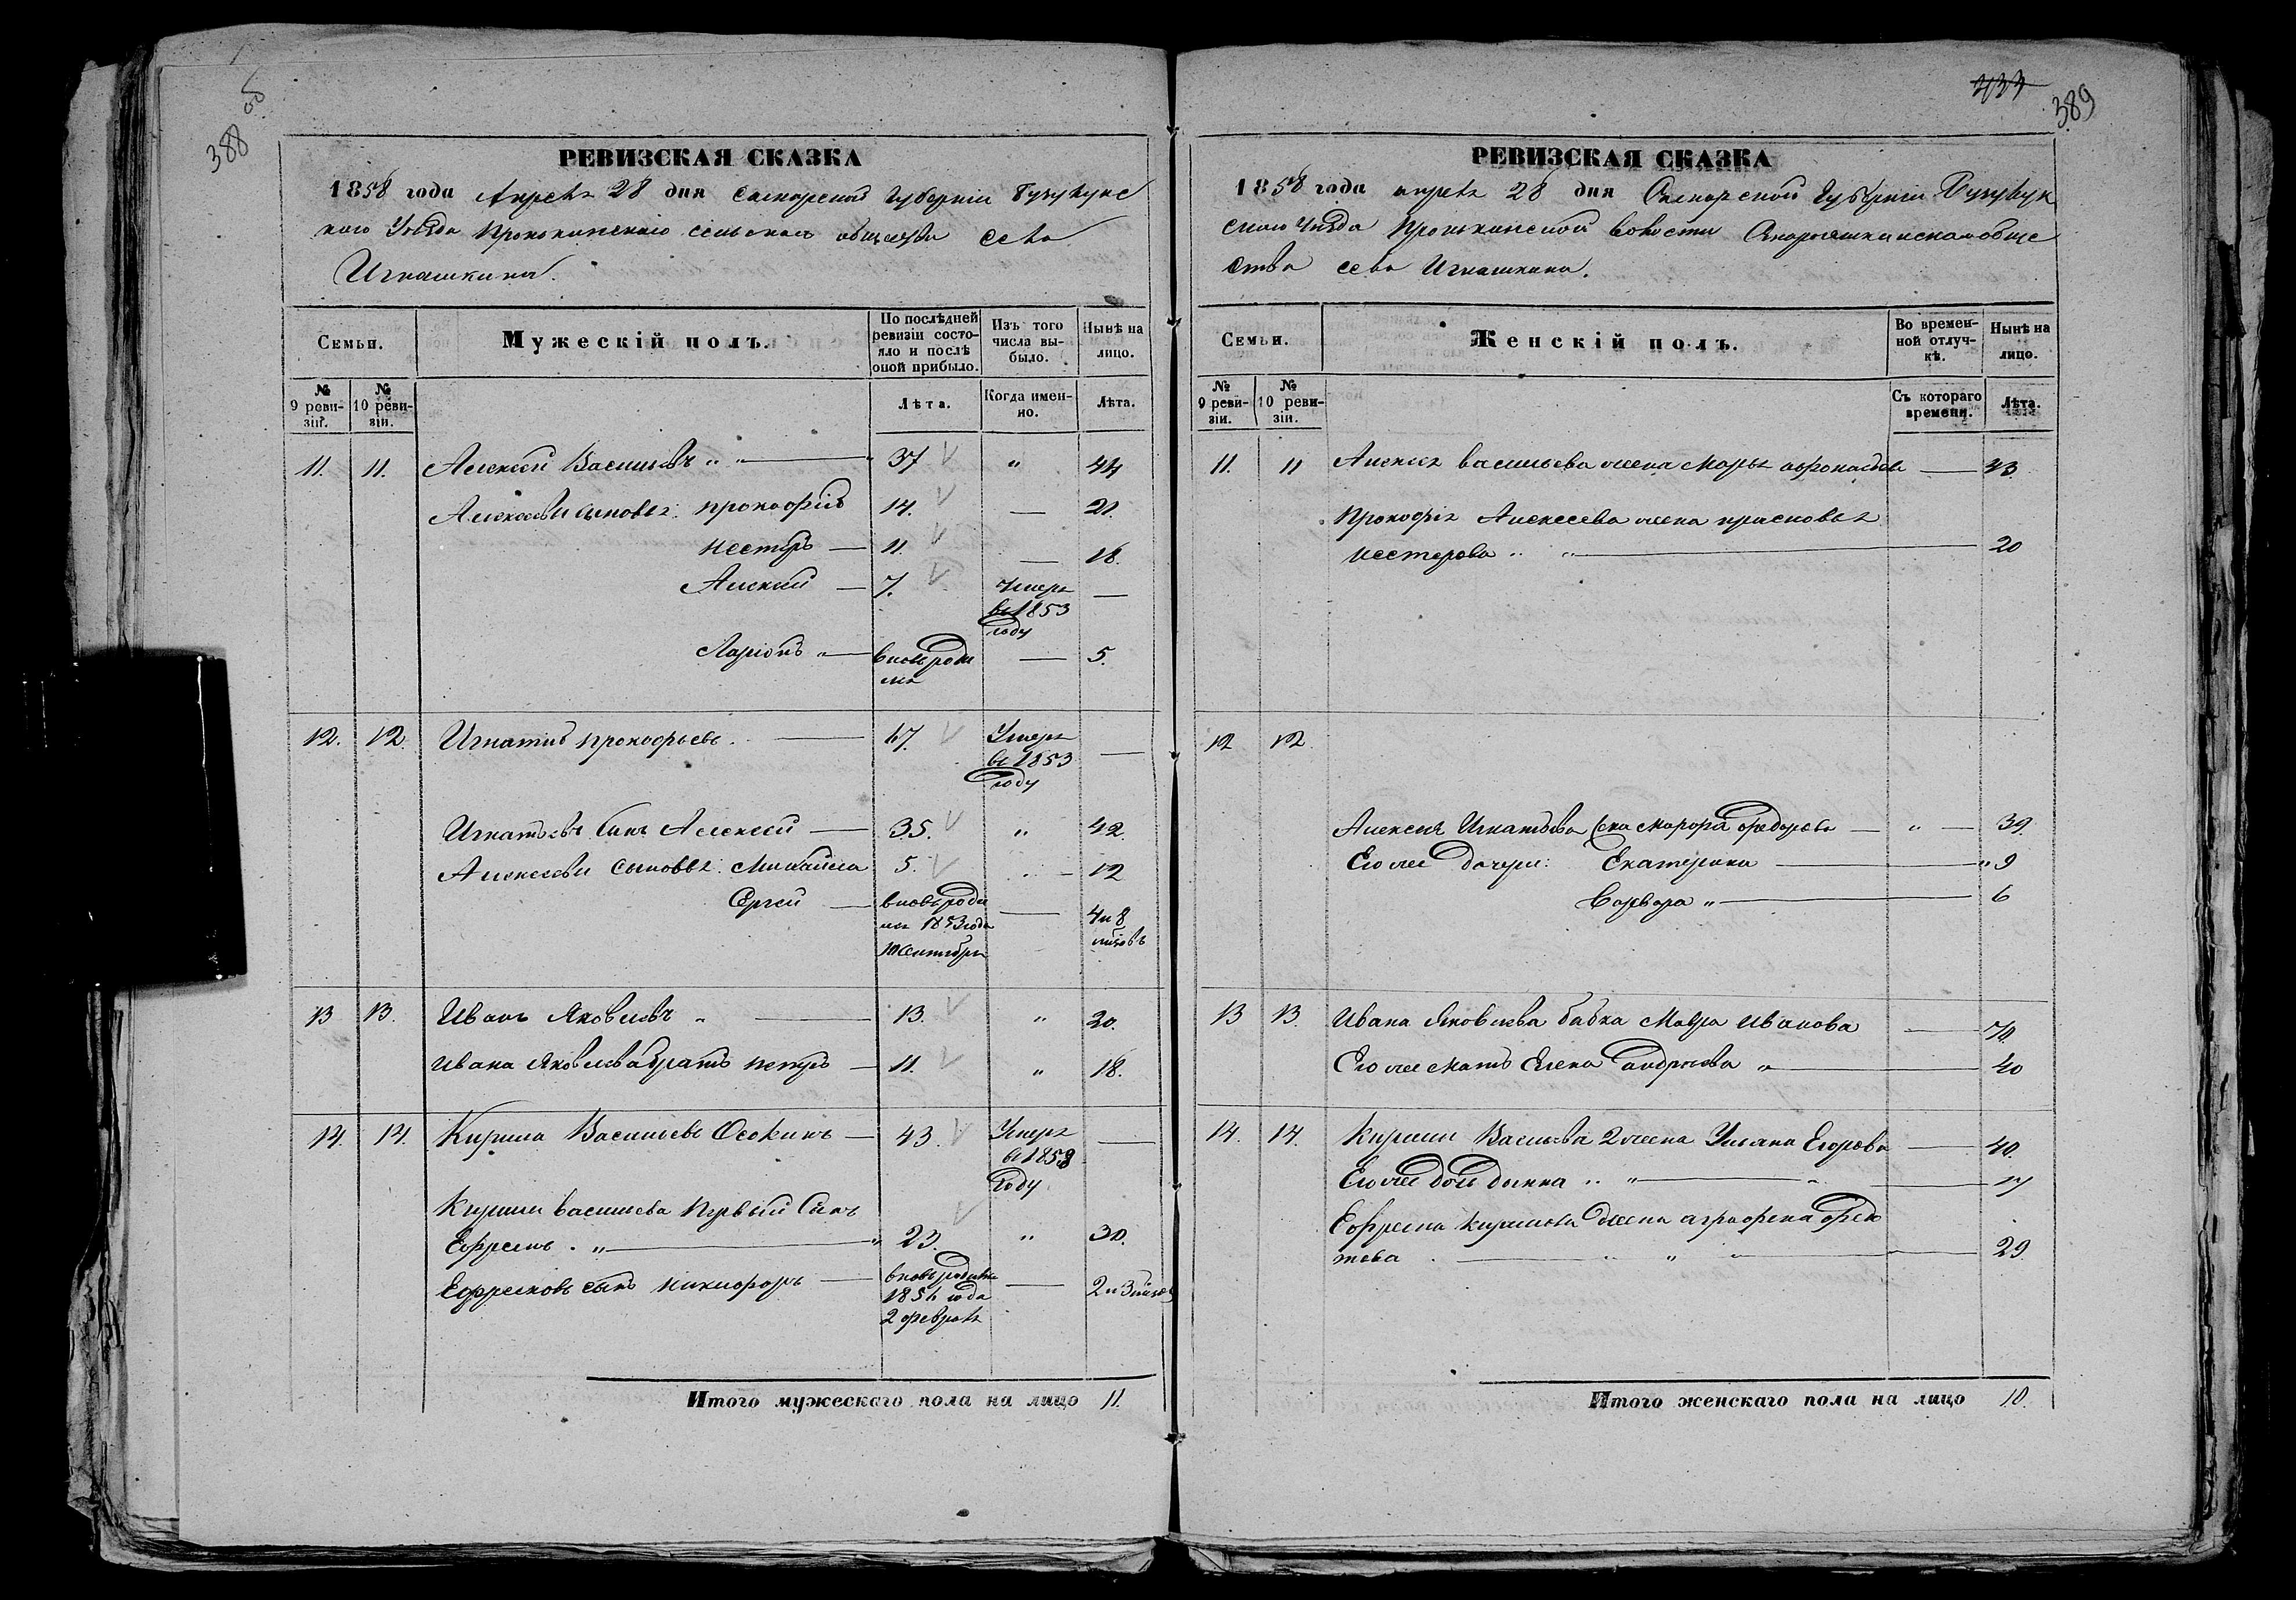 388 об
РЕВИЗСКАЯ СКАЗКА
1858 года Апреля 28 дня Самарской Губернии Бугурус
кого Уезда сельскаго общества села
Игнашкина.
Семьи.
Мужескій полъ.
По послѣдней ревизіи состояло и послѣ оной прибыло.
Изъ того числа выбыло.
Нынѣ на лицо.
№ 9 ревизіи.
№ 10 ревизіи.
Лѣта.
Когда именно.
Лѣта.
11. 11. Алексей Васильевъ 37 " 44
Алексеевы сыновья: прокофий 14. — 21.
нестеръ — 11. — 18.
Алексей — 7. Умеръ —
в 1853
году
Ларионъ " — вновь роди — 5.
лся
12. 12. Игнатий прокофьевъ. — 67. Умеръ —
в 1853
году
Игнатьевъ сынъ Алексей — 35. " 42.
Алексеевы сыновья: Михайла 5. — 12
Сергей — вновь роди — 4 и 8
лся 1853 года месяцовъ
10 Сентября
13 13. Иванъ Яковлевъ " — 13. " 20.
Ивана Яковлева братъ петръ — 11. " 18.
14. 14. Кирила Васильевъ Осокинъ — 43. Умеръ —
в 1858
году
Кирилы васильева первый Сынъ
Ефремъ. " — 23. " 30.
Ефремовъ сынъ никифоръ — вновь родился — 2 и 3 месяц
года
2 февраля
Итого мужескаго пола на лицо 11.
389
РЕВИЗСКАЯ СКАЗКА
1858 года апреля 28 дня Самарской Губернии Бугурук
скаго Уезда волости обще
ства села Игнашкина.
Семьи.
Женскій полъ.
Во временной отлучкѣ.
Нынѣ на лицо.
№ 9 ревизіи.
№ 10 ревизіи.
Съ котораго времени.
Лѣта.
11. 11 Алексея васильева жена Марья афонасьева — 43.
Прокофья Алексеева жена прасковья
нестерова " " — 20
12 12.
Алексея Игнатьева жена Федорова — " — 39.
Его же дочери: Екатерина — " 9
Варвара " — 6
13 13. Ивана Яковлева бабка Мавра Иванова — 70.
Его же мать Елена андреева " — 40
14. 14. Кирилы Васильева 2 жена Ульяна Егорова — 40.
Его же дочь домна " " —
Ефрема кирилова жена аграфена
— 29.
Итого женскаго пола на лицо 10.